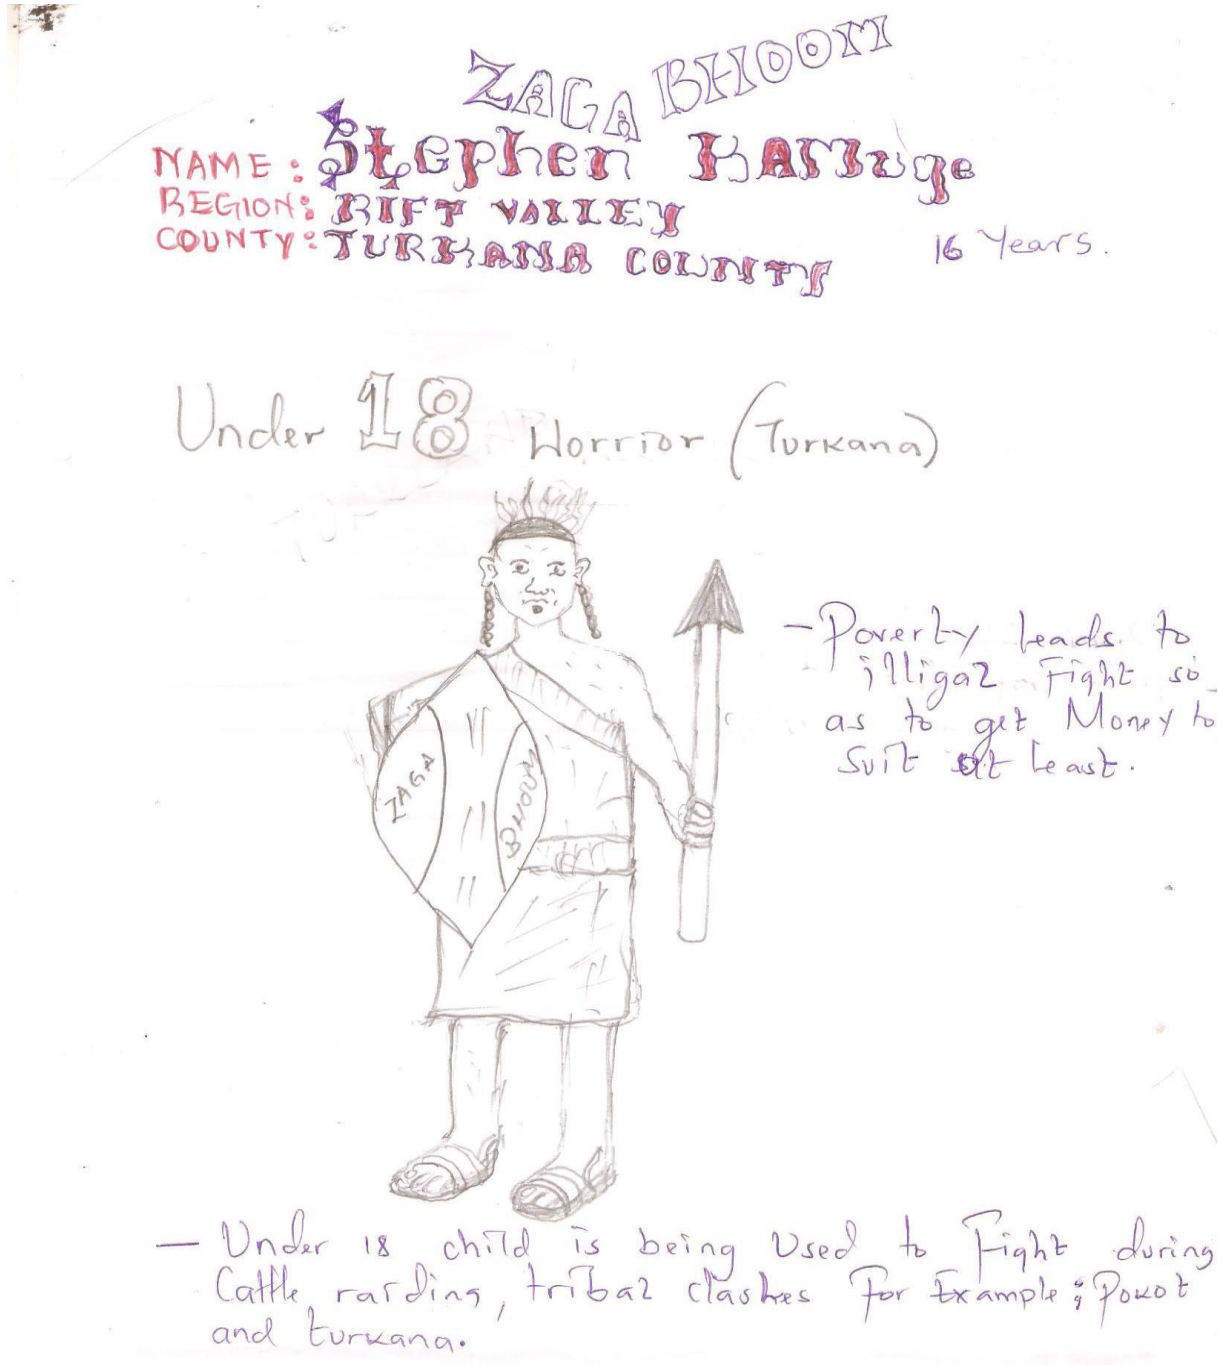 ZAGA BHOOM
NAME: Stephen KAMUge
REGION: RIFT VALLEY
COUNTY: TURKANA COUNTY
16 Years.
Under 18 Worrior (Turkana)
- Poverty leads to
illigal Fight so
as to get Money to
suit at least.
ZAGA
BHOOM
- Under 18 child is being Used to Fight during
Cattle raiding, tribal clashes For Example; Pokot
and turkana.